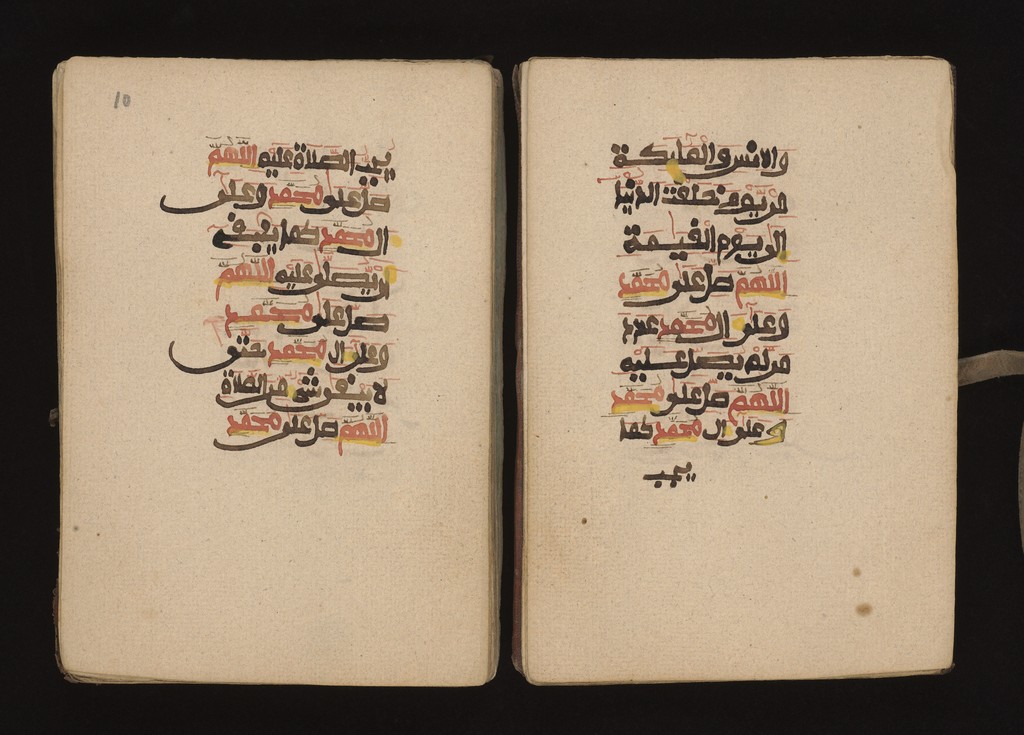 والانس والمليكة
من يوم خلقت الدنيا
الى يوم القيمة
اللهم صل على محمد
وعلى ال محمد عدد
من لم يصل عليه
اللهم صل على محمد
وعلى ال محمد كما
يجب
يجب الصلاة عليه اللهم
صل على محمد وعلى
ال محمد كما ينبغى
ان يصلى عليه اللهم
صل على محمد
وعلى ال محمد حتى
لا يبقى شى من الصلاة
اللهم صل على محمد
10